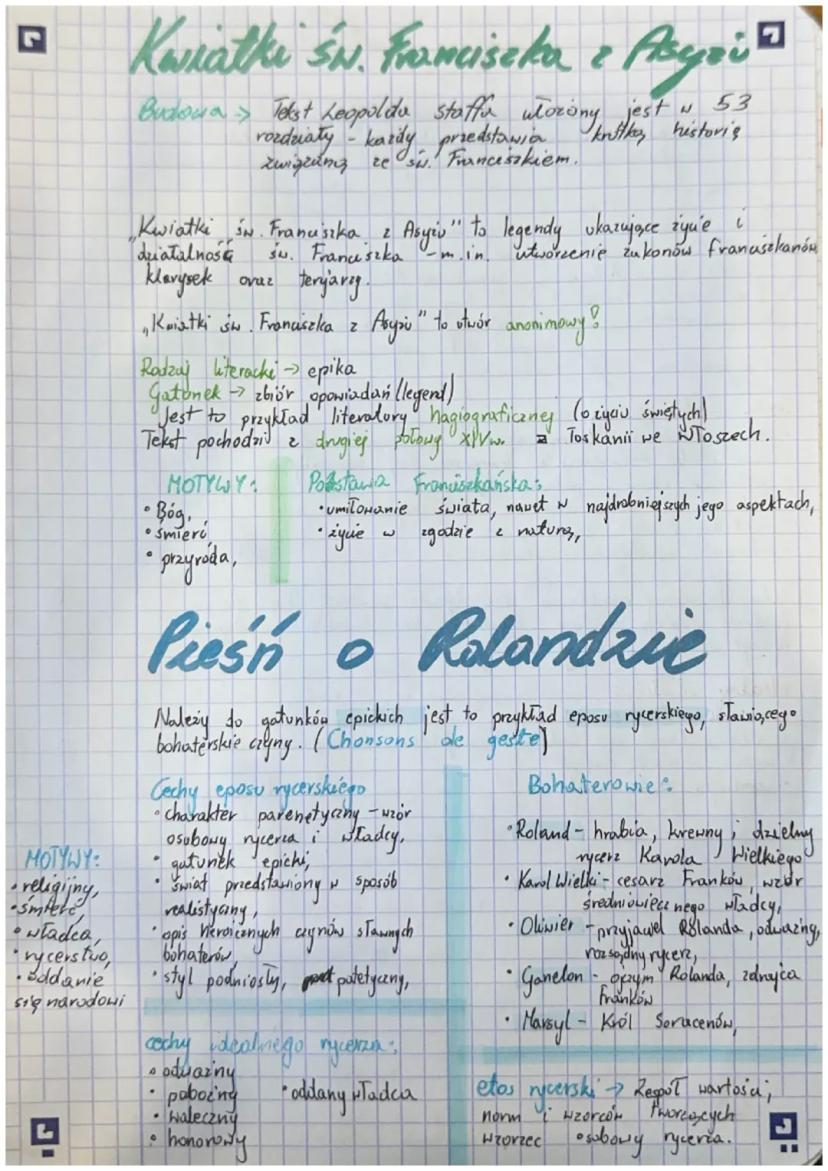 Kwiatki św. Franciszka z Asyżu
Budowa → Tekst Leopolda Staffa ułożony jest w 53
rozdziały - każdy przedstawia krótką historię
związaną ze św. Franciszkiem.
„Kwiatki św. Franciszka z Asyżu" to legendy ukazujące życie i
działalność św. Franciszka - m.in. utworzenie zakonów franciszkanów,
klarysek oraz tercjarzy.
„Kwiatki św. Franciszka z Asyżu" to utwór anonimowy!
Rodzaj literacki → epika
Gatunek → zbiór opowiadań (legend)
Jest to przykład literatury hagiograficznej (o życiu świętych)
Tekst pochodzi z drugiej połowy XIV w. z Toskanii we Włoszech.
MOTYWY:
• Bóg,
• śmierć,
• przyroda,
Postawa Franciszkańska:
• umiłowanie świata, nawet w najdrobniejszych jego aspektach,
• życie w zgodzie z naturą,
Pieśń o Rolandzie
Należy do gatunków epickich jest to przykład eposu rycerskiego, sławiącego
bohaterskie czyny. (Chonsons de geste)
MOTYWY:
• religijny,
• śmierć,
• władca,
• rycerstwo,
• oddanie
się narodowi
Cechy eposu rycerskiego
• charakter parenetyczny - wzór
osobowy rycerza i władcy,
• gatunek epicki,
• świat przedstawiony w sposób
realistyczny,
• opis heroicznych czynów sławnych
bohaterów,
• styl podniosły, patetyczny,
cechy idealnego rycerza:
• odważny
• pobożny
• waleczny
• honorowy
• oddany władca
Bohaterowie:
• Roland - hrabia, krewny i dzielny
rycerz Karola Wielkiego
• Karol Wielki - cesarz Franków, wzór
średniowiecznego władcy,
• Oliwier - przyjaciel Rolanda, odważny,
rozsądny rycerz,
• Ganelon - ojczym Rolanda, zdrajca
Franków
• Marsyl - Król Saracenów,
etos rycerski → Zespół wartości,
norm i wzorców tworzących
wzorzec osobowy rycerza.